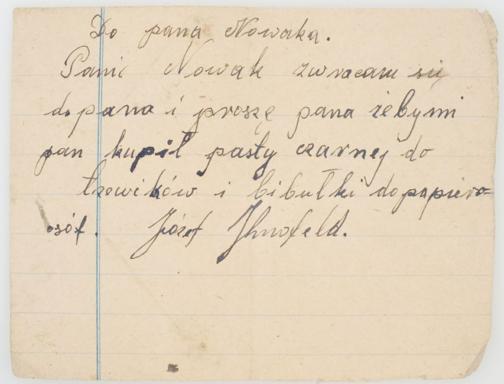 Do pana Nowaka.
Panie Nowak zwracam się
do pana i proszę pana żebymi
pan kupił pasty czarnej do
trzewików i bibułki do papiero=
sóf. Józef